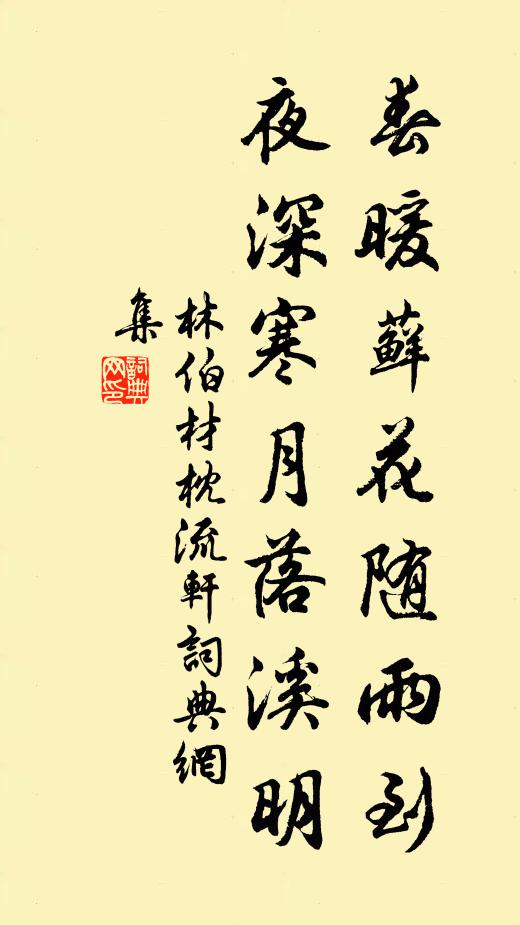 春暖蘚花随雨到
夜深寒月落溪明
林伯材枕流軒詞典網
集
詞典
网印